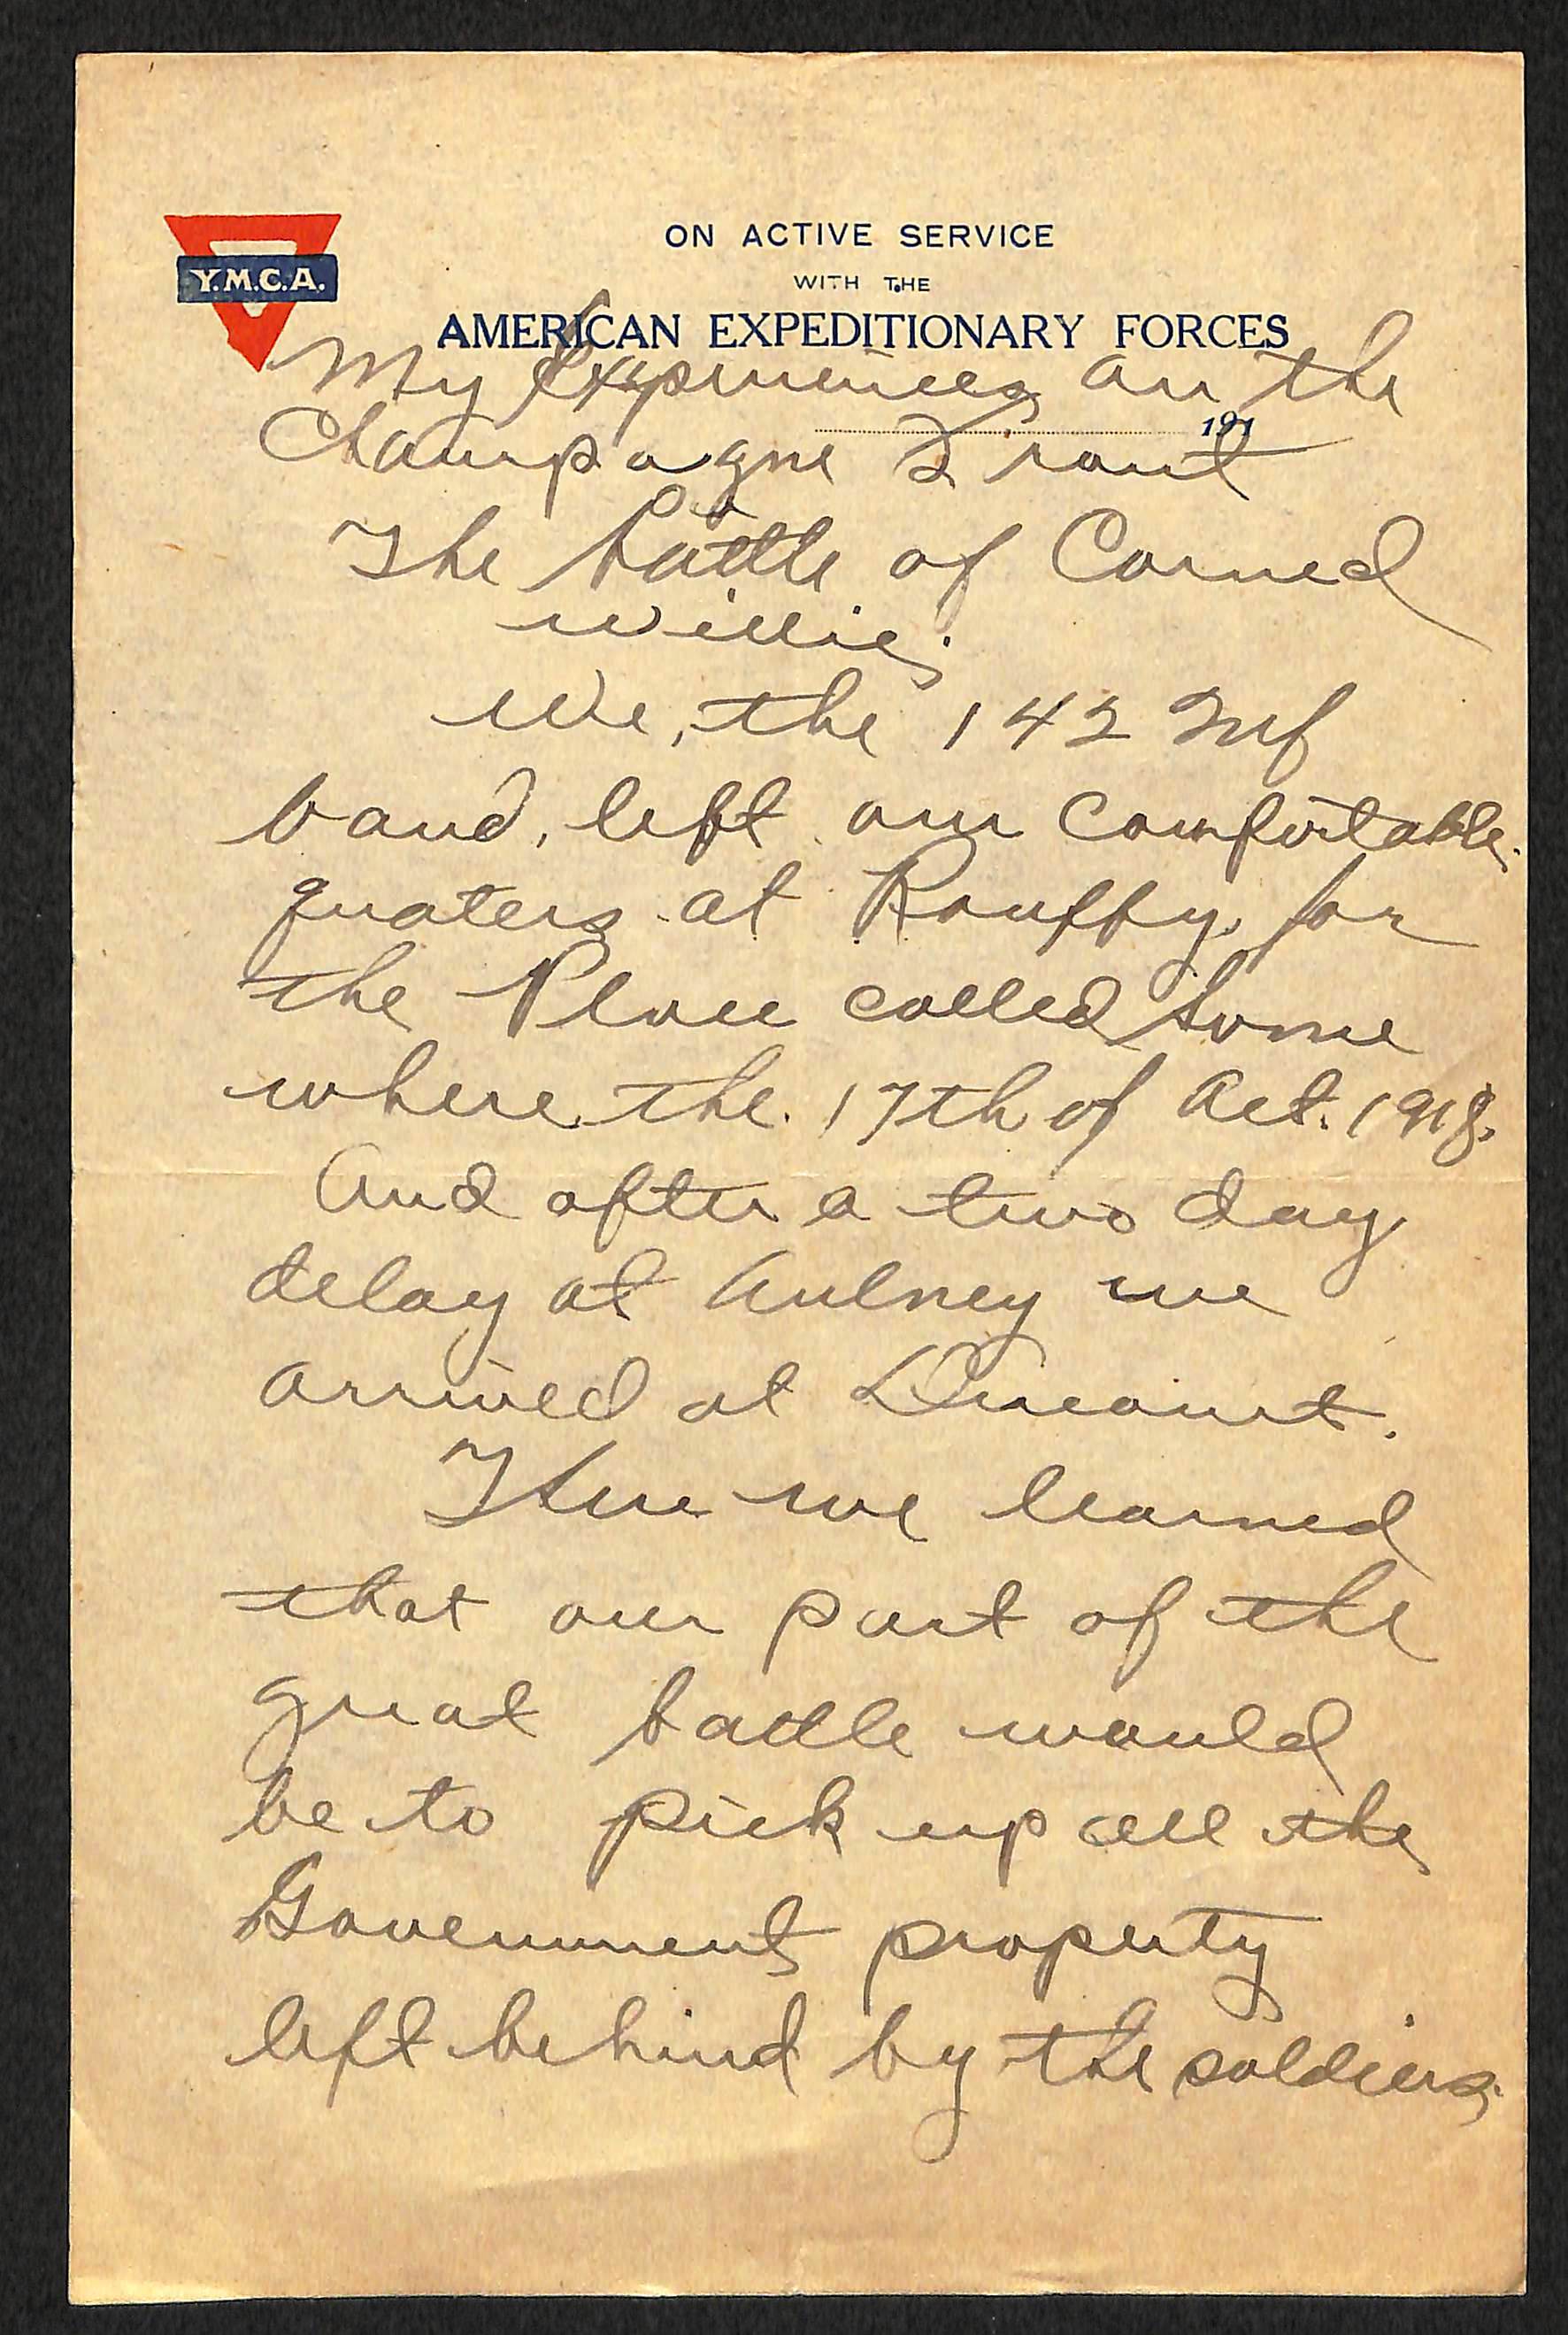 Y.M.C.A.
ON ACTIVE SERVICE
WITH THE
AMERICAN EXPEDITIONARY FORCES
191
My Experiences on the
Champagne Front
The battle of Corned
Willie.
We, the 142 Inf
band, left our comfortable
quaters at Rouffy for
the Place called Some
where the 17th of Oct. 1918.
And after a two day
delay at Aulney we
arrived at
Here we learned
that our part of the
great battle would
be to pick up all the
Government property
left behind by the soldiers.